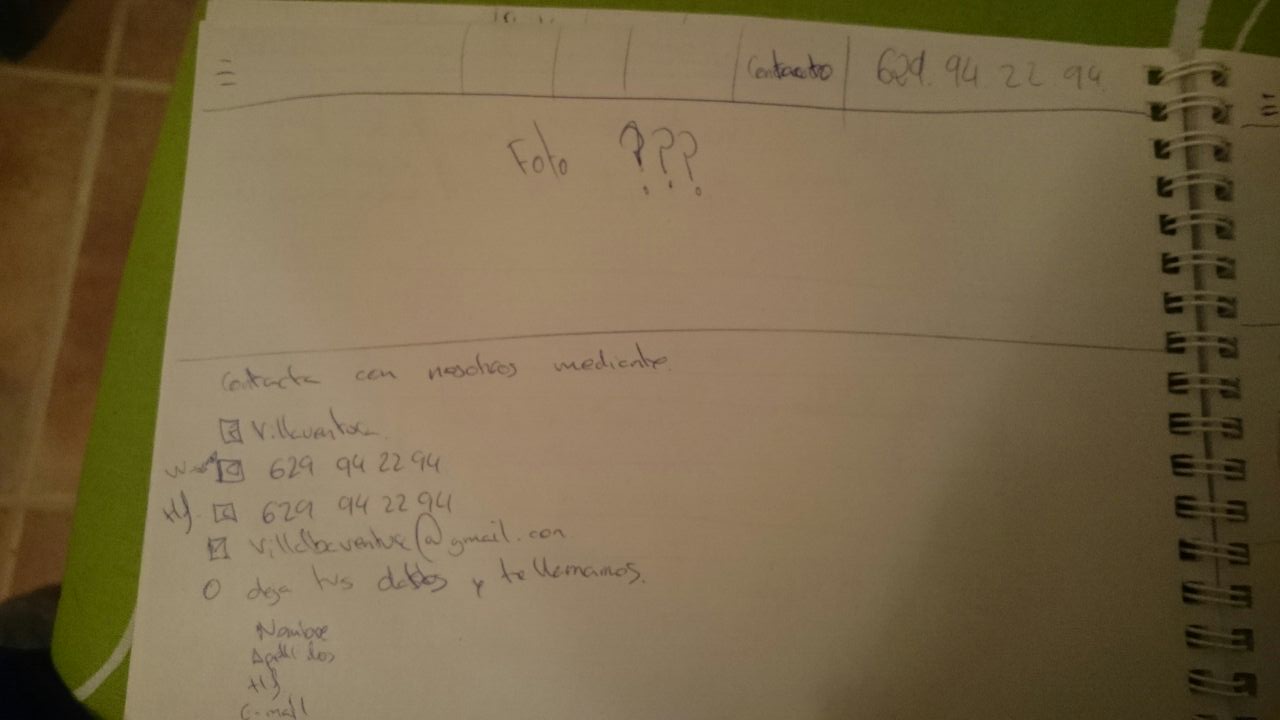 Contacto 629. 94 22 94
Foto ???
Contacta con nosotros mediante.
629 94 22 94
tlf. 629 94 22 94
@gmail.com
O deja tus datos y te llamamos.
Nombre
Apellidos
tlf
E-mail